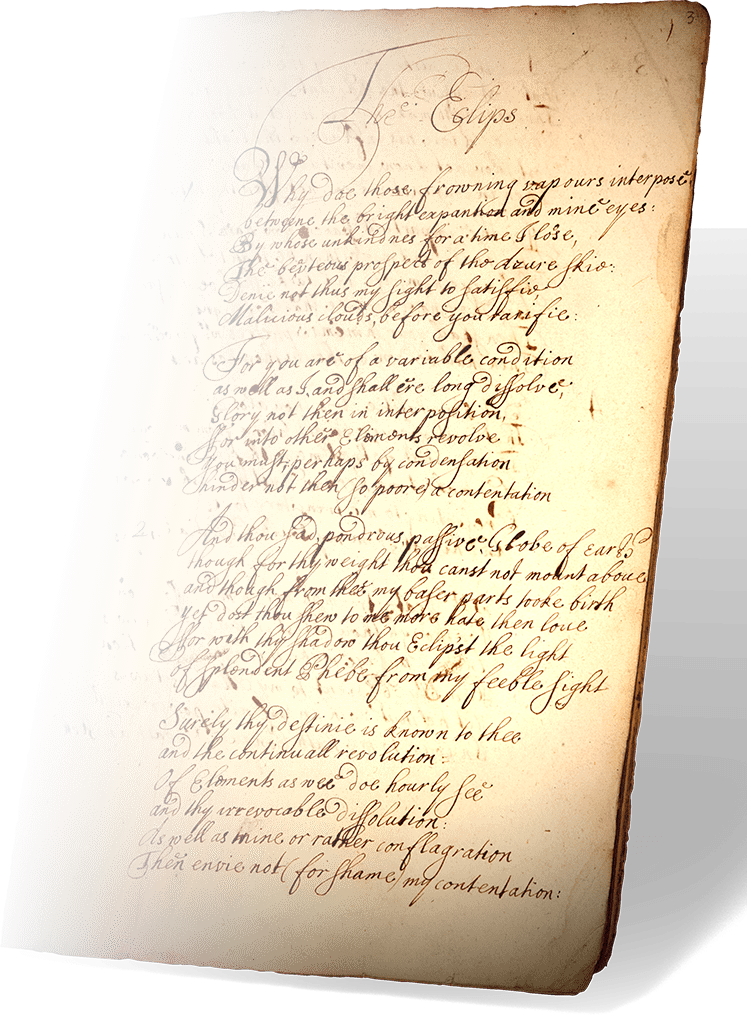 3
The Eclips
Why doe those frowning vapours interpose
betweene the bright expantion and mine eyes:
By whose unkindnes for a time I lose,
The beuteous prospect of the azure skie:
Denie not thus my sight to satisfie
Malicious clouds, before you rarifie:
For you are of a variable condition
as well as I, and shall ere long dissolve,
Glory not then in interposition,
For into other Elements revolve
You must, perhaps by condensation
hinder not then (so poore) a contentation
2
And thou sad, pondrous, passive Globe of earth
though for thy weight thou canst not mount above
and though from thee my baser parts tooke birth
yet dost thou shew to me more hate then love
For with thy shadow thou Eclips'st the light
of splendent Phebe from my feeble sight
Surely thy destinie is known to thee
and the continuall revolution:
Of Elements as wee doe hourly see
and thy irrevocable dissolution:
As well as mine or rather conflagration
Then envie not (for shame) my contentation: